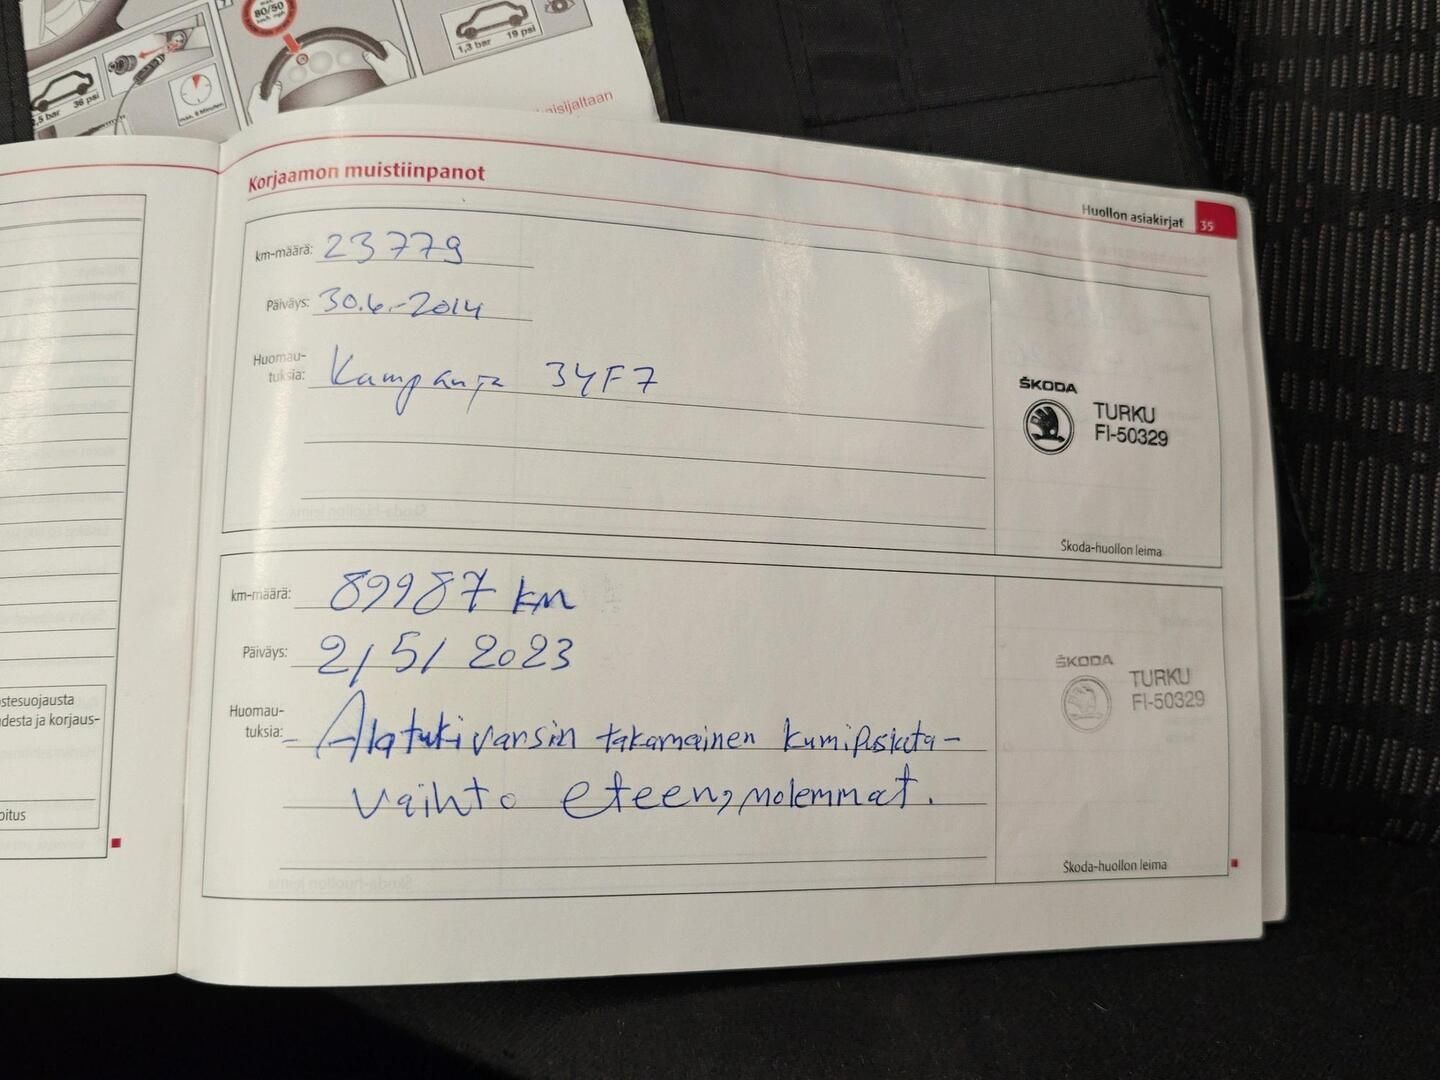 80/50
km/h mph
1,3 bar 19 psi
2,5 bar 36 psi
max. 8 Minuten
Korjaamon muistiinpanot
Huollon asiakirjat 35
km-määrä: 23779
Päiväys: 30.6.-2014
Huomau-
tuksia: Kampanja 34F7
ŠKODA
TURKU
FI-50329
Škoda-huollon leima
km-määrä: 89987 km
Päiväys: 2/5/2023
Huomau-
tuksia: - Alatukivarsin takamainen kumipuslata-
vaihto eteen, molemmat.
ŠKODA
TURKU
FI-50329
Škoda-huollon leima
stesuojausta
desta ja korjaus-
oitus